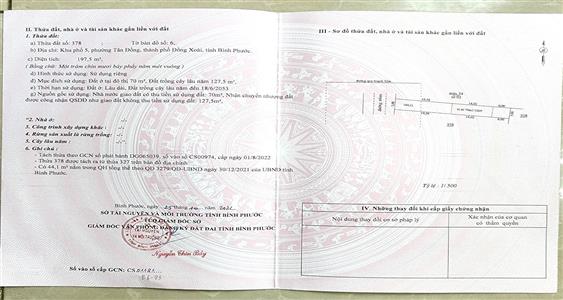 II. Thửa đất, nhà ở và tài sản khác gắn liền với đất
1. Thửa đất:
a) Thửa đất số: 378 Tờ bản đồ số: 6,
b) Địa chỉ: Khu phố 5, phường Tân Đồng, thành phố Đồng Xoài, tỉnh Bình Phước.
c) Diện tích: 197,5 m²,
( Bằng chữ: Một trăm chín mươi bảy phẩy năm mét vuông )
d) Hình thức sử dụng: Sử dụng riêng
đ) Mục đích sử dụng: Đất ở tại đô thị 70 m², Đất trồng cây lâu năm 127,5 m².
e) Thời hạn sử dụng: Đất ở: Lâu dài, Đất trồng cây lâu năm đến 18/6/2053
g) Nguồn gốc sử dụng: Nhà nước giao đất có thu tiền sử dụng đất: 70m², Nhận chuyển nhượng đất
được công nhận QSDĐ như giao đất không thu tiền sử dụng đất: 127,5m².
"2. Nhà ở: -/-
3. Công trình xây dựng khác: -/-
4. Rừng sản xuất là rừng trồng: -/-
5. Cây lâu năm: -/-
6. Ghi chú
- Tách thửa theo GCN số phát hành DG065039, số vào sổ CS00974, cấp ngày 01/8/2022
- Thửa 378 được tách ra từ thửa 327 trên bản đồ địa chính.
- Có 44,1 m² nằm trong QH tổng thể theo QĐ 3279/QĐ-UBND ngày 30/12/2021 của UBND tỉnh
Bình Phước.
Bình Phước, ngày
SỞ TÀI NGUYÊN VÀ MÔI TRƯỜNG TỈNH BÌNH PHƯỚC
TUQ.GIÁM ĐỐC SỞ
GIÁM ĐỐC VĂN PHÒNG ĐĂNG KÝ ĐẤT ĐAI TỈNH BÌNH PHƯỚC
Nguyễn Chín Bảy
Số vào sổ cấp GCN:
III - Sơ đồ thửa đất, nhà ở và tài sản khác gắn liền với đất
Tỷ lệ 1:500
IV. Những thay đổi khi cấp giấy chứng nhận
Nội dung thay đổi cơ sở pháp lý
Xác nhận của cơ quan
có thẩm quyền